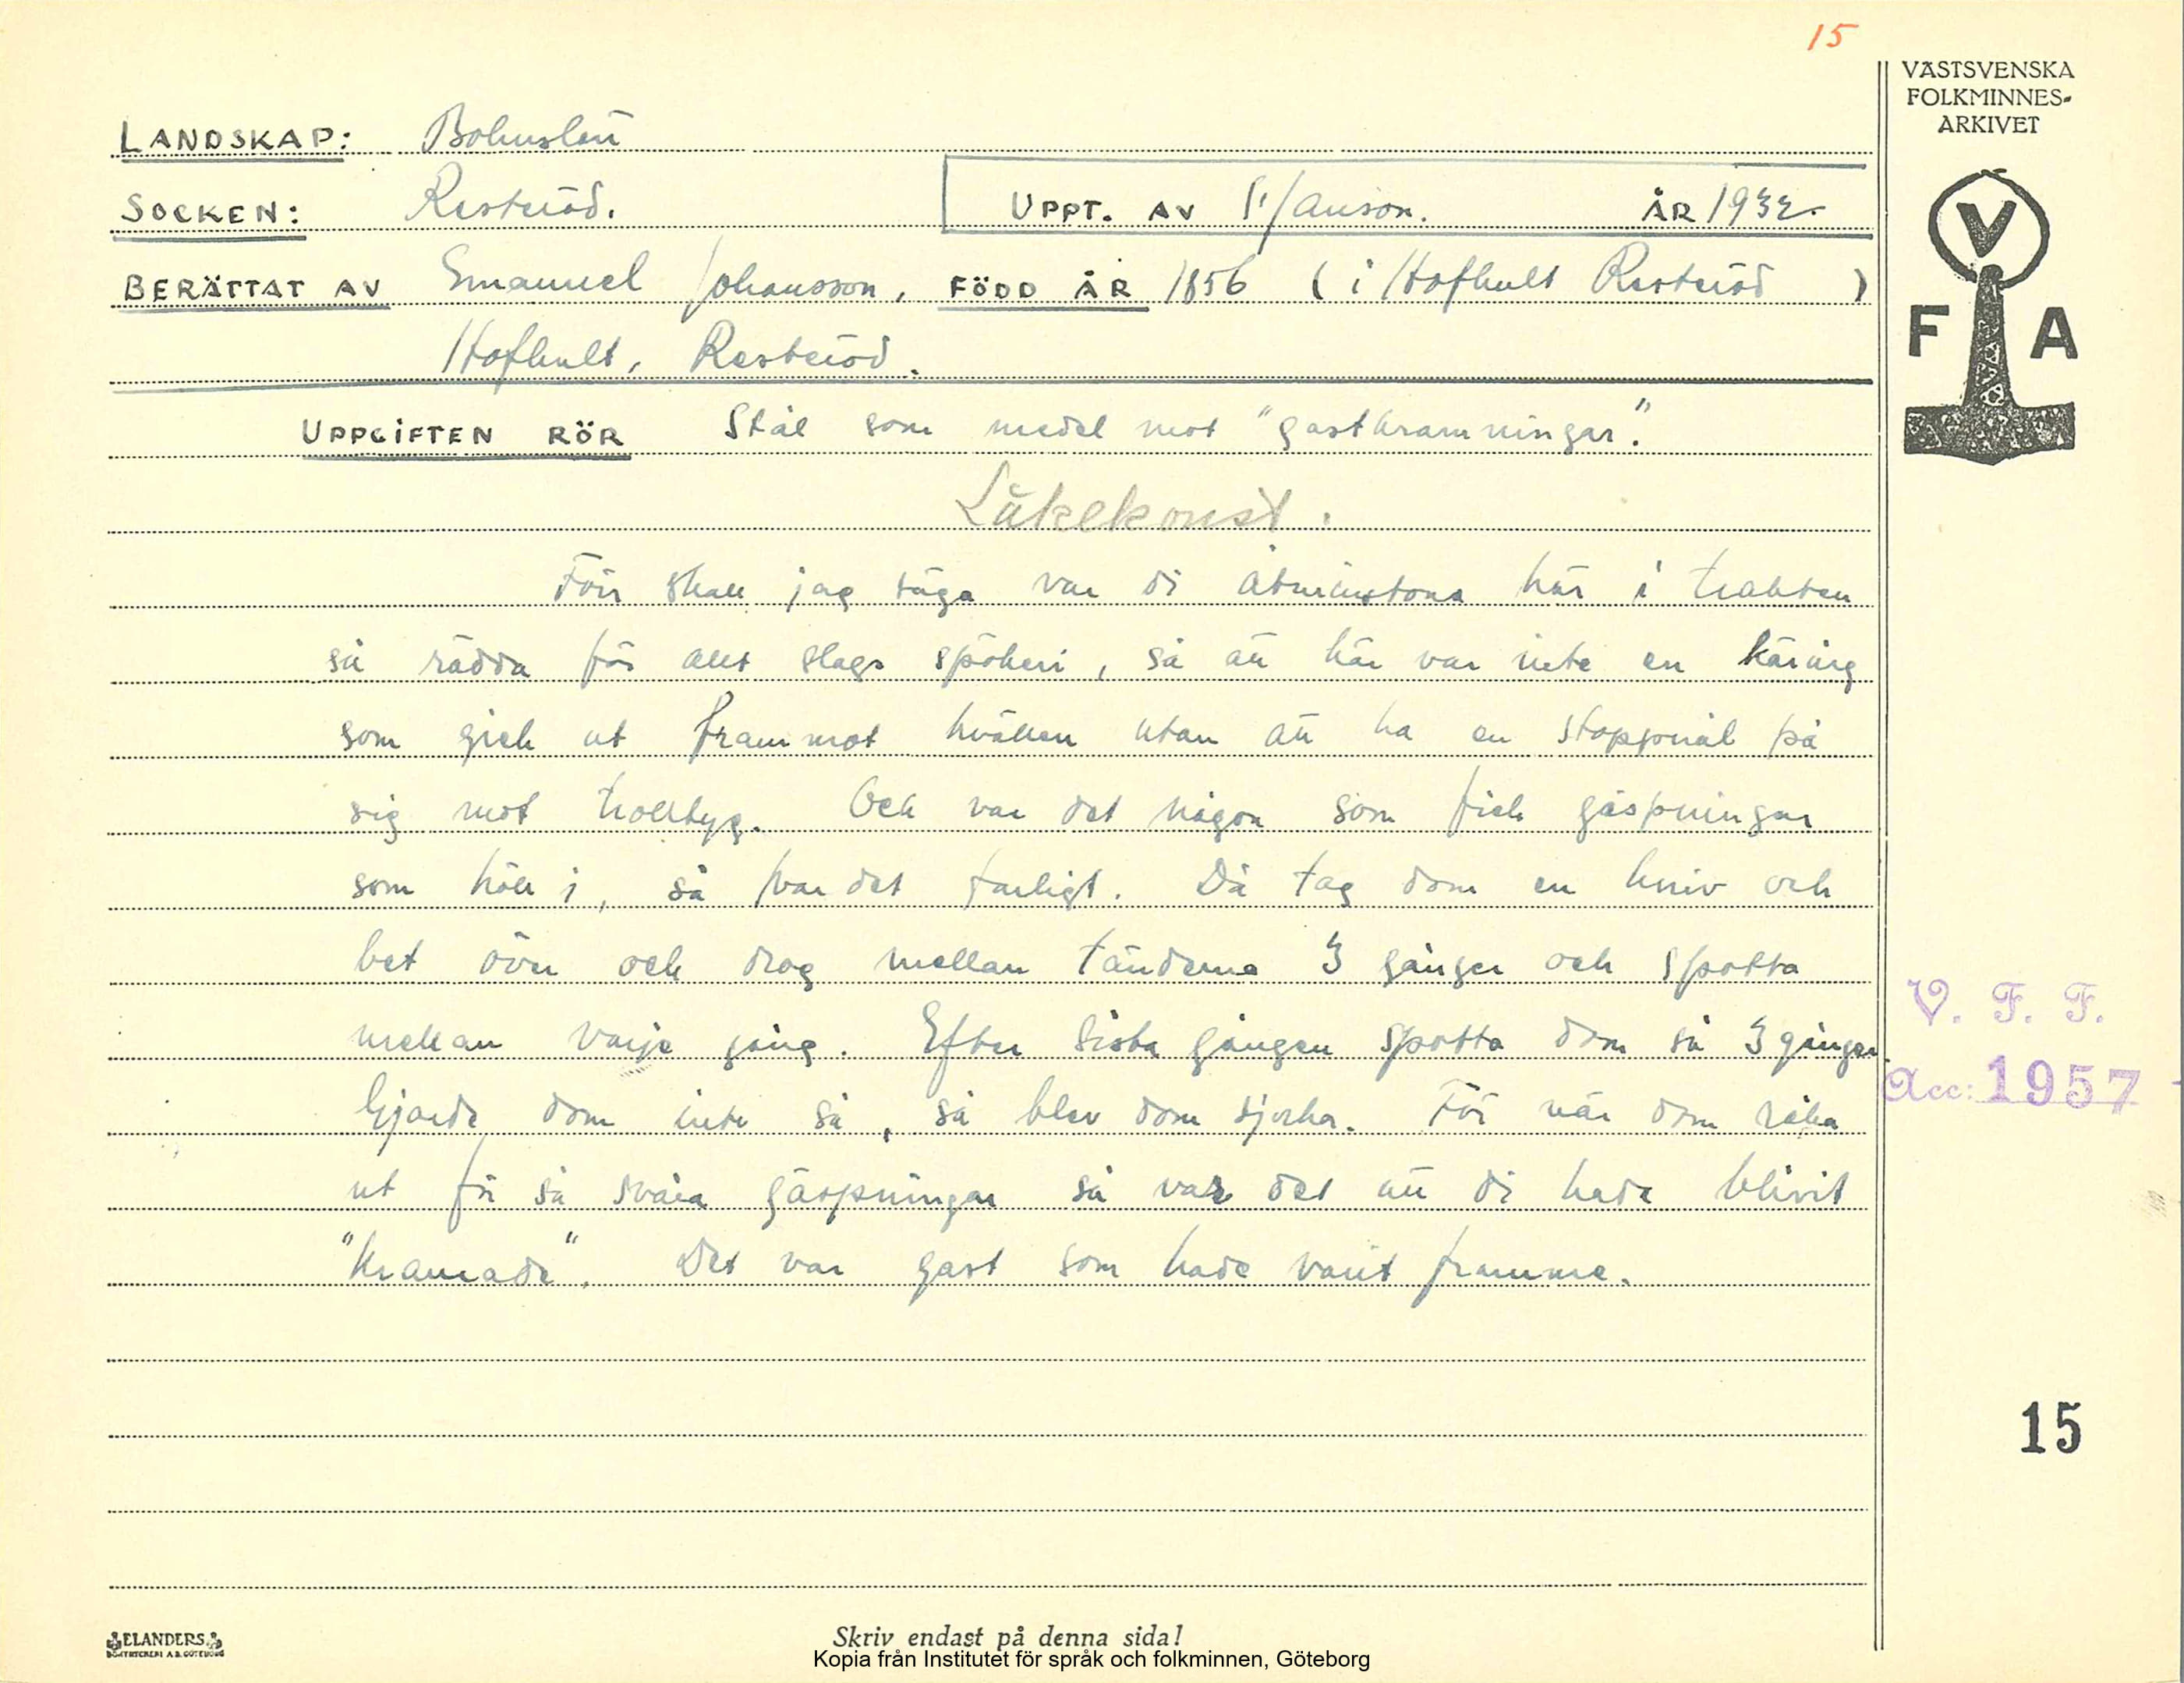 15
VÄSTSVENSKA
FOLKMINNES-
ARKIVET
LANDSKAP: Bohuslän
SOCKEN: Resteröd. UPPT. AV S. Janson. ÅR 1932.
BERÄTTAT AV Emanuel Johansson, FÖDD ÅR 1856 (i Hafhult Resteröd)
Hafhult, Resteröd.
V
F A
UPPGIFTEN RÖR Stål som medel mot "gastkramningar".
Läkekonst.
Förr skall jag säga var di åtminstona här i trakten
så rädda för allt slags spökeri, så att här var inte en käring
som gick ut frammot kvällen utan att ha en stoppnål på
sig mot trolltyg. Och var det någon som fick gäspningar
som höll i, så var det farligt. Då tag dom en kniv och
bet över och drog mellan tänderna 3 gånger och spotta
mellan varje gång. Efter sista gången spotta dom så 3 gånger.
Gjorde dom inte så, så blev dom sjoka. För när dom råka
ut för så svåra gäspningar så var det att di hade blivit
"kramade". Det var gast som hade varit framme.
V. F. F.
Acc: 1957
15
ELANDERS
BOKTRYCKERI A.B. GÖTEBORG
Skriv endast på denna sida!
Kopia från Institutet för språk och folkminnen, Göteborg